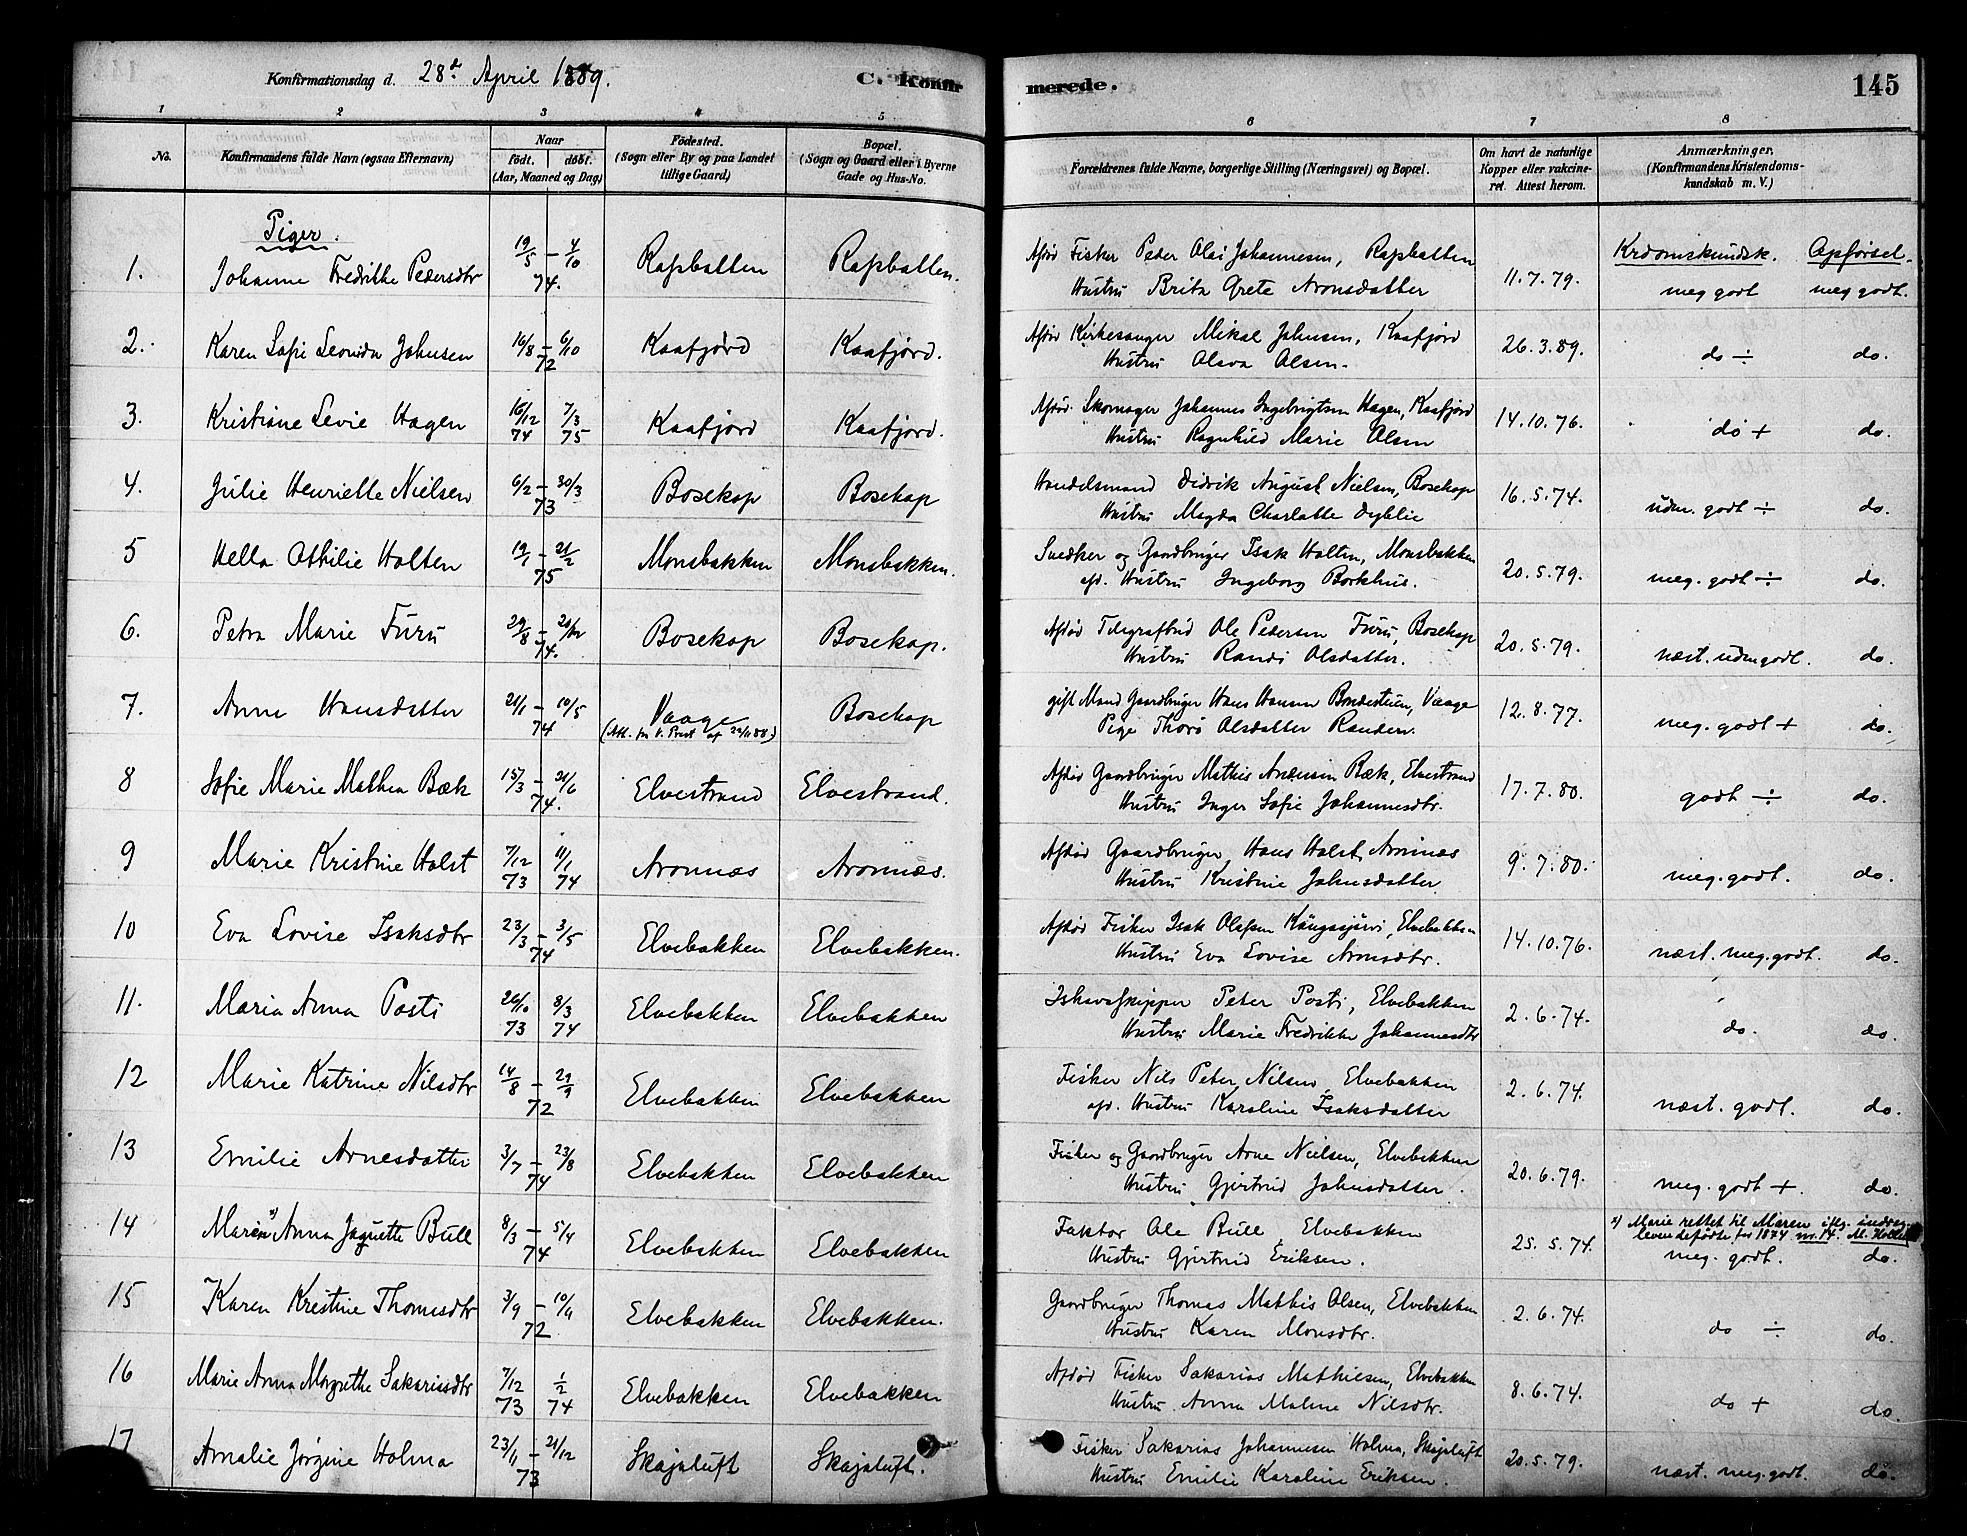 Konfirmationsdag d. 28de April 1889. C. Konfirmerede. 145
1 2 3 4 5 6 7 8
No. Konfirmandens fulde Navn (ogsaa Efternavn) Naar født. døbt. (Aar, Maaned og Dag) Fødested. (Sogn eller By og paa Landet tillige Gaard) Bopæl. (Sogn og Gaard eller i Byerne Gade og Hus-No. Forældrenes fulde Navne, borgerlige Stilling (Næringsvei) og Bopæl. Om havt de naturlige Kopper eller vakcineret. Attest herom. Anmærkninger, (Konfirmandens Kristendomskundskab m. V.)
Piger. Krdomskundsk. Opførsel.
1. Johanne Fredrikke Pedersdtr 19/5 – 4/10 74. Rafsbatten Rafsbatten. Afdød Fisker Peder Olai Johannesen, Rafsbatten
Hustru Brita Grete Aronsdatter 11.7.79. meg godt meg godt.
2. Karen Sofie Leonida Johnsen 16/8 – 6/10 72 Kaafjord Kaafjord. Afdød Kirkesanger Mikal Johnsen, Kaafjord
Hustru Olava Olsen. 26.3.89. do ÷ do.
3. Kristiane Levie Hagen 16/12 74 7/3 75 Kaafjord Kaafjord. Afdød. Skomager Johannes Ingebrigtsen Hagen, Kaafjord
Hustru Ragnhild Marie Olsen 14.10.76. do + do.
4. Julie Henriette Nielsen 6/2 – 30/3 73 Bosekop Bosekop Handelsmand Didrik August Nielsen, Bosekop
Hustru Magda Charlotte 16.5.74. udm. godt ÷ do.
5 Hella Othilie Holten 19/1 – 21/2 75 Monsbakken Monsbakken. Snedker og Gaardbruger Isak Holten, Monsbakken
afd. Hustru Ingeborg Borkhus. 20.5.79. meg. godt ÷ do.
6. Petra Marie Furu 29/8 – 74. Bosekop Bosekop. Afdød Telegrafbud Ole Pedersen Furu, Bosekop
Hustru Randi Olsdatter. 20.5.79. næst. udm godt. do.
7. Anne Hansdatter 21/1 – 10/5 74 Vaage Bosekop gift Mand Gaardbruger Hans Hansen Vaage
(Att. fra V. Prest af 22/11 88) Pige Thora Olsdatter Randen. 12.8.77. meg. godt + do.
8 Sofie Marie Mathea Bæk 15/3 – 21/6 74. Elvestrand Elvestrand. Afdød Gaardbruger Mathis Andersen Bæk, Elvestrand
Hustru Inger Sofie Johannesdtr. 17.7.80. godt ÷ do.
9 Marie Kristine Holst 7/12 73 11/1 74 Aronnæs Aronnæs. Afdød Gaardbruger Hans Holst, Aronnæs
Hustru Kristine Johnsdatter 9.7.80. meg. godt. do.
10 Eva Lovise Isaksdtr 23/3 – 3/5 74 Elvebakken Elvebakken. Afdød Fisker Isak Olafsen Elvebakken
Hustru Eva Lovise Aronsdtr. 14.10.76. næst. meg. godt. do.
11. Maria Anna Posti 26/10 73 8/3 74 Elvebakken Elvebakken Ishavsskipper Peter Posti, Elvebakken
Hustru Marie Fredrikke Johannesdtr 2.6.74. do. do.
12 Marie Katrine Nilsdtr 14/8 – 29/9 72 Elvebakken Elvebakken Fisker Nils Peter Nilsen, Elvebakken
afd. Hustru Karoline Isaksdatter 2.6.74. næst. godt. do.
13 Emilie Arnesdatter 3/7 – 23/8 74 Elvebakken Elvebakken Fisker og Gaardbruger Arne Nielsen, Elvebakken
Hustru Gjertrud Johnsdatter. 20.6.79. meg. godt +. do.
14 Maren x) Anna Jaquette Bull 8/3 – 5/4 74 Elvebakken Elvebakken Faktor Ole Bull, Elvebakken x) Marie rettet til Maren iflg. indreg.
levendefødte for 1874 nr. 14.
Hustru Gjertrud Eriksen. 25.5.74. meg. godt. do.
15 Karen Kristine Thomasdtr 3/9 – 10/4 72 Elvebakken Elvebakken. Gaardbruger Thomas Mathis Olsen, Elvebakken
Hustru Karen Monsdtr. 2.6.74. do ÷ do.
16 Marie Anna Margrethe Sakariasdtr 7/12 73 1/2 74 Elvebakken Elvebakken Afdød Fisker Sakarias Mathiesen, Elvebakken
Hustru Anna Malene Nilsdtr. 8.6.74. do + do.
17 Amalie Jørgine Holma 23/11 – 21/12 73 Skajaluft Skajaluft. Fisker Sakarias Johannesen Holma, Skajaluft
Hustru Emilie Karoline Eriksen. 20.5.79. næst. meg. godt. do.